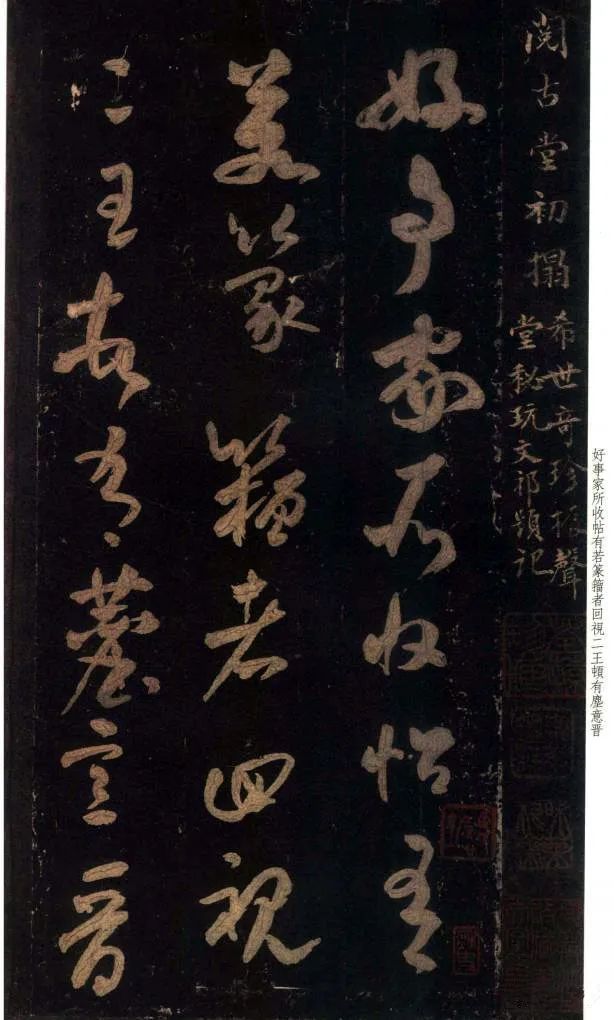 好事家所收帖有若篆籀者回視二王頓有塵意晉
閱古堂初搨
希世奇珍振聲
堂秘玩文祁記
好事家所收帖有
若篆籀者回視
二王頓有塵意晉